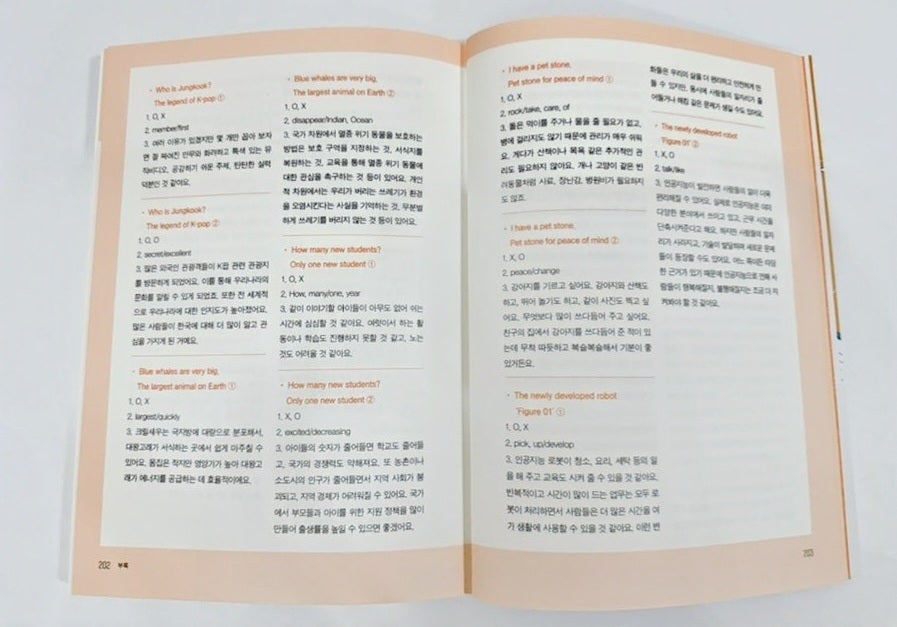 · Who is Jungkook?
The legend of K-pop ①
1. O, X
2. member/first
3. 여러 이유가 있겠지만 몇 개만 꼽아 보자
면 잘 짜여진 안무와 화려하고 특색 있는 뮤
직비디오, 공감하기 쉬운 주제, 탄탄한 실력
덕분인 것 같아요.
· Who is Jungkook?
The legend of K-pop ②
1. O, O
2. secret/excellent
3. 많은 외국인 관광객들이 K팝 관련 관광지
를 방문하게 되었어요. 이를 통해 우리나라의
문화를 알릴 수 있게 되었죠. 또한 전 세계적
으로 우리나라에 대한 인지도가 높아졌어요.
많은 사람들이 한국에 대해 더 많이 알고 관
심을 가지게 된 거예요.
· Blue whales are very big,
The largest animal on Earth ①
1. O, X
2. largest/quickly
3. 크릴새우는 극지방에 대량으로 분포해서,
대왕고래가 서식하는 곳에서 쉽게 마주칠 수
있어요. 몸집은 작지만 영양가가 높아 대왕고
래가 에너지를 공급하는 데 효율적이에요.
· Blue whales are very big,
The largest animal on Earth ②
1. O, X
2. disappear/Indian, Ocean
3. 국가 차원에서 멸종 위기 동물을 보호하는
방법은 보호 구역을 지정하는 것, 서식지를
복원하는 것, 교육을 통해 멸종 위기 동물에
대한 관심을 촉구하는 것 등이 있어요. 개인
적 차원에서는 우리가 버리는 쓰레기가 환경
을 오염시킨다는 사실을 기억하는 것, 무분별
하게 쓰레기를 버리지 않는 것 등이 있어요.
· How many new students?
Only one new student ①
1. O, X
2. How, many/one, year
3. 같이 이야기할 아이들이 아무도 없어 쉬는
시간에 심심할 것 같아요. 여럿이서 하는 활
동이나 학습도 진행하지 못할 것 같고, 노는
것도 어려울 것 같아요.
· How many new students?
Only one new student ②
1. X, O
2. excited/decreasing
3. 아이들의 숫자가 줄어들면 학교도 줄어들
고, 국가의 경쟁력도 약해져요. 또 농촌이나
소도시의 인구가 줄어들면서 지역 사회가 붕
괴되고, 지역 경제가 어려워질 수 있어요. 국가
에서 부모들과 아이를 위한 지원 정책을 많이
만들어 출생률을 높일 수 있으면 좋겠어요.
202 부록
· I have a pet stone,
Pet stone for peace of mind ①
1. O, X
2. rock/take, care, of
3. 돌은 먹이를 주거나 물을 줄 필요가 없고,
병에 걸리지도 않기 때문에 관리가 매우 쉬워
요. 게다가 산책이나 목욕 같은 추가적인 관
리도 필요하지 않아요. 개나 고양이 같은 반
려동물처럼 사료, 장난감, 병원비가 필요하지
도 않죠.
· I have a pet stone,
Pet stone for peace of mind ②
1. X, O
2. peace/change
3. 강아지를 기르고 싶어요. 강아지와 산책도
하고, 뛰어 놀기도 하고, 같이 사진도 찍고 싶
어요. 무엇보다 많이 쓰다듬어 주고 싶어요.
친구의 집에서 강아지를 쓰다듬어 준 적이 있
는데 무척 따듯하고 복슬복슬해서 기분이 좋
았거든요.
· The newly developed robot
'Figure 01' ①
1. O, X
2. pick, up/develop
3. 인공지능 로봇이 청소, 요리, 세탁 등의 일
을 해 주고 교육도 시켜 줄 수 있을 것 같아요.
반복적이고 시간이 많이 드는 업무는 모두 로
봇이 처리하면서 사람들은 더 많은 시간을 여
가 생활에 사용할 수 있을 것 같아요. 이런 변
화들은 우리의 삶을 더 편리하고 안전하게 만
들 수 있지만, 동시에 사람들의 일자리가 줄
어들거나 해킹 같은 문제가 생길 수도 있어요.
· The newly developed robot
'Figure 01' ②
1. X, O
2. talk/like
3. 인공지능이 발전하면 사람들의 삶이 더욱
편리해질 수 있어요. 실제로 인공지능은 이미
다양한 분야에서 쓰이고 있고, 근무 시간을
단축시켜준다고 해요. 하지만 사람들의 일자
리가 사라지고, 기술이 발달하며 새로운 문제
들이 등장할 수도 있어요. 어느 쪽이든 타당
한 근거가 있기 때문에 인공지능으로 인해 사
람들이 행복해질지, 불행해질지는 조금 더 지
켜봐야 할 것 같아요.
203